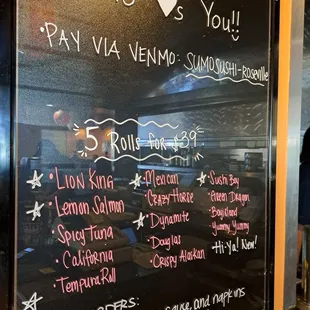 s You!!
• PAY VIA VENMO: SUMOSUSHI-Roseville
5 Rolls for $39
• LION KING
• Lemon Salmon
• Spicy Tuna
• California
• Tempura Roll
• Mexican
• CRAZY HORSE
• Dynamite
• Douglas
• Crispy Alaskan
• Sushi Boy
• Green Dragon
• Boyz Island
• Yummy Yummy
• Hi-Ya! New!
ORDERS:
sauce, and napkins